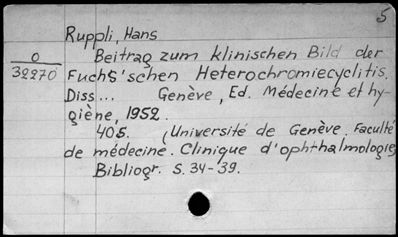 5
Ruppli, Hans
O Beitrag zum klinischen Bild der
32270 Fuchs'schen Heterochromiecyclitis.
Diss... Genève, Ed. Médecine et hy-
giène, 1952.
40S. (Université de Genève. Faculté
de médecine. Clinique d'ophthalmologie)
Bibliogr. S. 34-39.